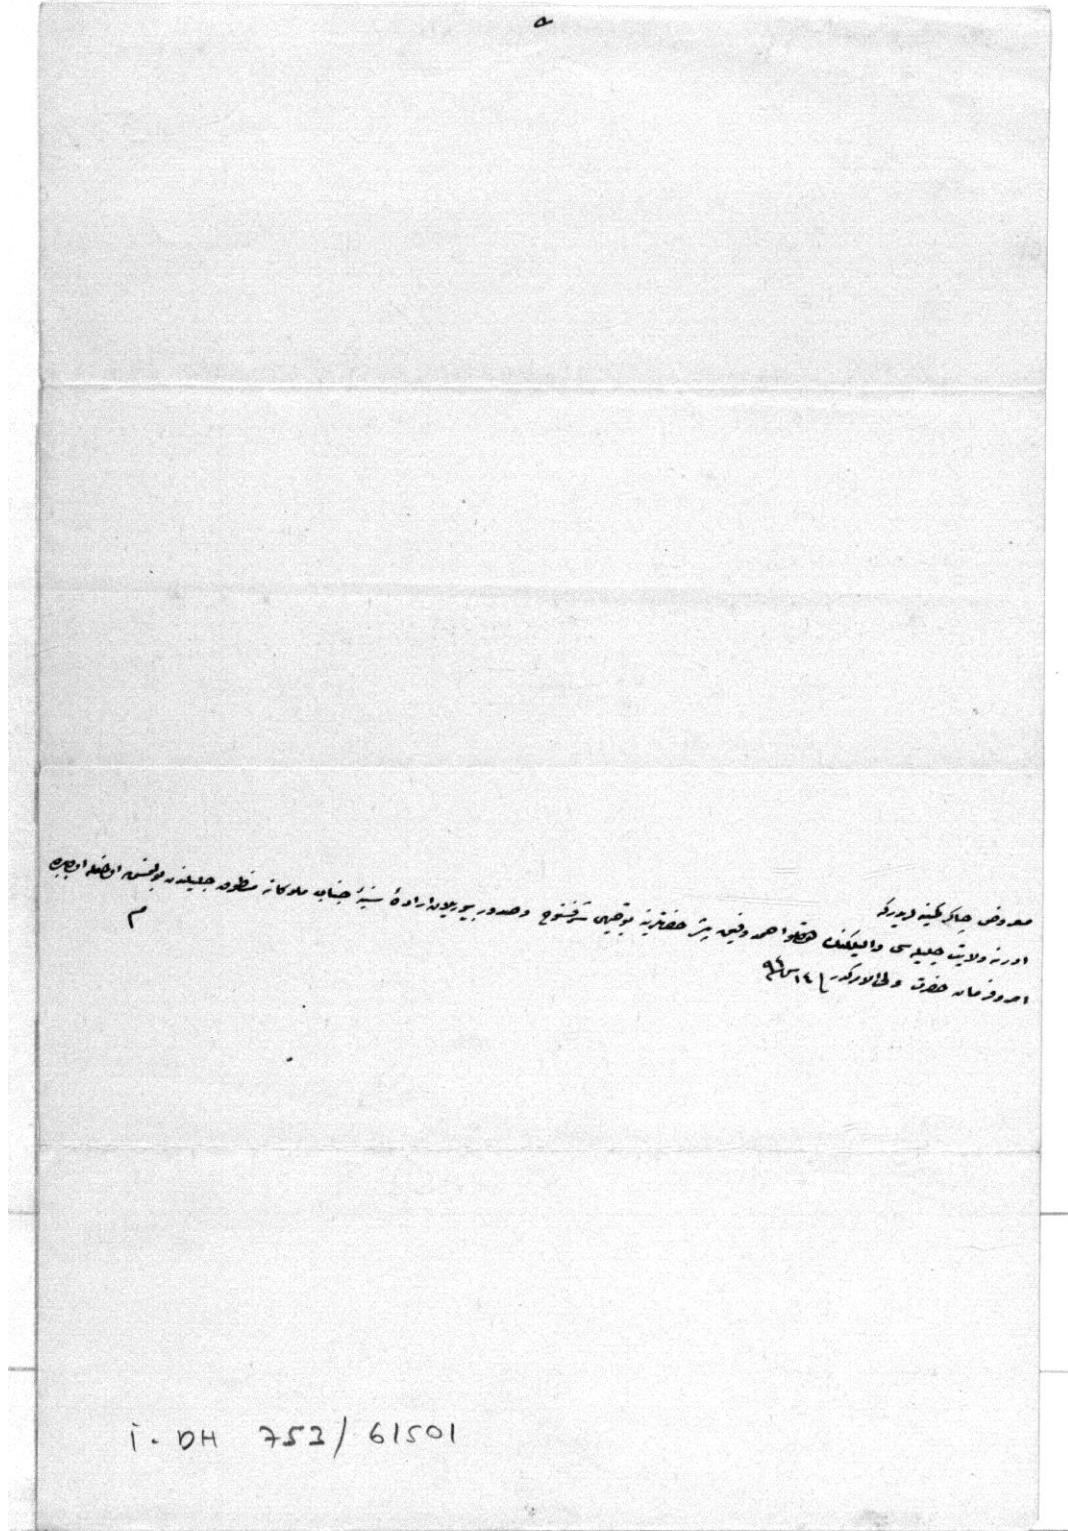 معروض چاكر كمينه لريدركه
ادرنه ولايت جليله سى واليلكنك دولتلو احمد وفيق پاشا حضرتلرينه توجيهى شرفسنوح وصدور بيوريلان ارادهٔ سنيهٔ جناب ملوكانه منطوق جليلندن بولنمش اولمغله اولبابده
امر وفرمان حضرت ولى الامركدر ١٤ ٩٤
م
İ. DH 753/61501